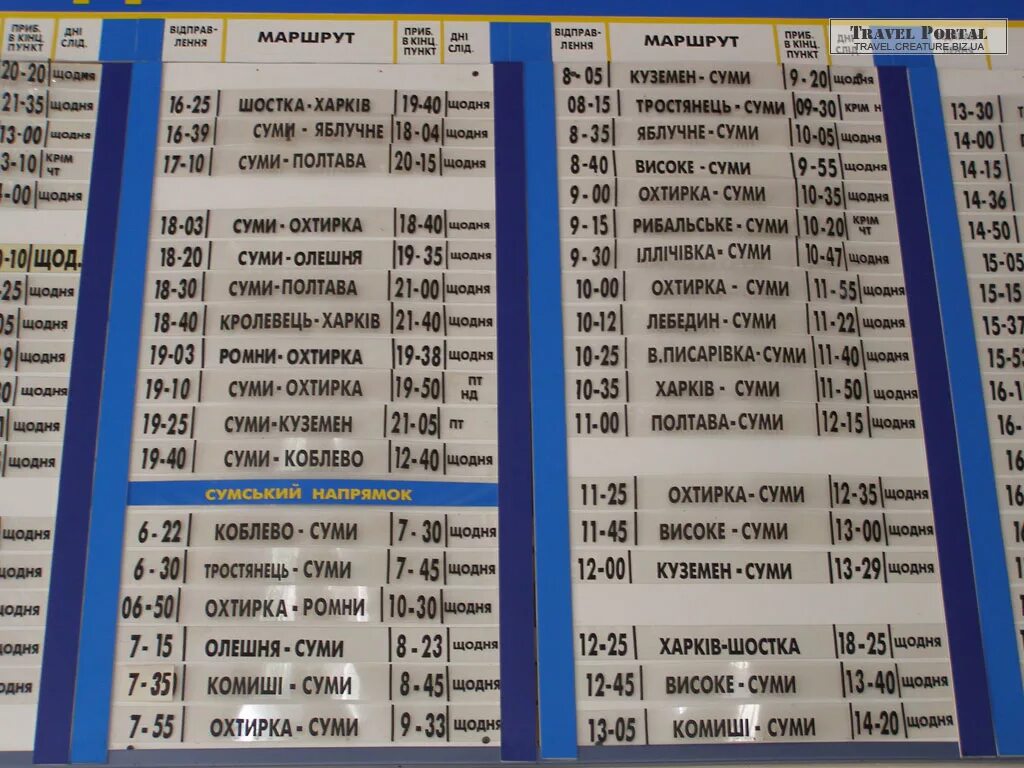 TRAVEL PORTAL
TRAVEL.CREATURE.BIZ.UA
ПРИБ. В КІНЦ. ПУНКТ ДНІ СЛІД.
20-20 щодня
21-35 щодня
13-00 щодня
3-10 КРІМ ЧТ
-00 щодня
-10 ЩОД.
-25 щодня
щодня
щодня
щодня
щодня
щодня
щодня
щодня
ВІДПРАВ-ЛЕННЯ МАРШРУТ ПРИБ. В КІНЦ. ПУНКТ ДНІ СЛІД.
16-25 ШОСТКА-ХАРКІВ 19-40 щодня
16-39 СУМИ - ЯБЛУЧНЕ 18-04 щодня
17-10 СУМИ-ПОЛТАВА 20-15 щодня
18-03 СУМИ-ОХТИРКА 18-40 щодня
18-20 СУМИ-ОЛЕШНЯ 19-35 щодня
18-30 СУМИ-ПОЛТАВА 21-00 щодня
18-40 КРОЛЕВЕЦЬ-ХАРКІВ 21-40 щодня
19-03 РОМНИ-ОХТИРКА 19-38 щодня
19-10 СУМИ-ОХТИРКА 19-50 ПТ НД
19-25 СУМИ-КУЗЕМЕН 21-05 ПТ
19-40 СУМИ-КОБЛЕВО 12-40 щодня
СУМСЬКИЙ НАПРЯМОК
6-22 КОБЛЕВО-СУМИ 7-30 щодня
6-30 ТРОСТЯНЕЦЬ-СУМИ 7-45 щодня
06-50 ОХТИРКА-РОМНИ 10-30 щодня
7-15 ОЛЕШНЯ-СУМИ 8-23 щодня
7-35 КОМИШІ-СУМИ 8-45 щодня
7-55 ОХТИРКА-СУМИ 9-33 щодня
ВІДПРАВ-ЛЕННЯ МАРШРУТ ПРИБ. В КІНЦ. ПУНКТ
8-05 КУЗЕМЕН-СУМИ 9-20 щодня
08-15 ТРОСТЯНЕЦЬ-СУМИ 09-30 КРІМ Н
8-35 ЯБЛУЧНЕ-СУМИ 10-05 щодня
8-40 ВИСОКЕ-СУМИ 9-55 щодня
9-00 ОХТИРКА-СУМИ 10-35 щодня
9-15 РИБАЛЬСЬКЕ-СУМИ 10-20 КРІМ ЧТ
9-30 ІЛЛІЧІВКА-СУМИ 10-47 щодня
10-00 ОХТИРКА-СУМИ 11-55 щодня
10-12 ЛЕБЕДИН-СУМИ 11-22 щодня
10-25 В.ПИСАРІВКА-СУМИ 11-40 щодня
10-35 ХАРКІВ - СУМИ 11-50 щодня
11-00 ПОЛТАВА-СУМИ 12-15 щодня
11-25 ОХТИРКА-СУМИ 12-35 щодня
11-45 ВИСОКЕ-СУМИ 13-00 щодня
12-00 КУЗЕМЕН-СУМИ 13-29 щодня
12-25 ХАРКІВ-ШОСТКА 18-25 щодня
12-45 ВИСОКЕ-СУМИ 13-40 щодня
13-05 КОМИШІ-СУМИ 14-20 щодня
13-30
14-00
14-15
14-36
14-50
15-05
15-15
15-37